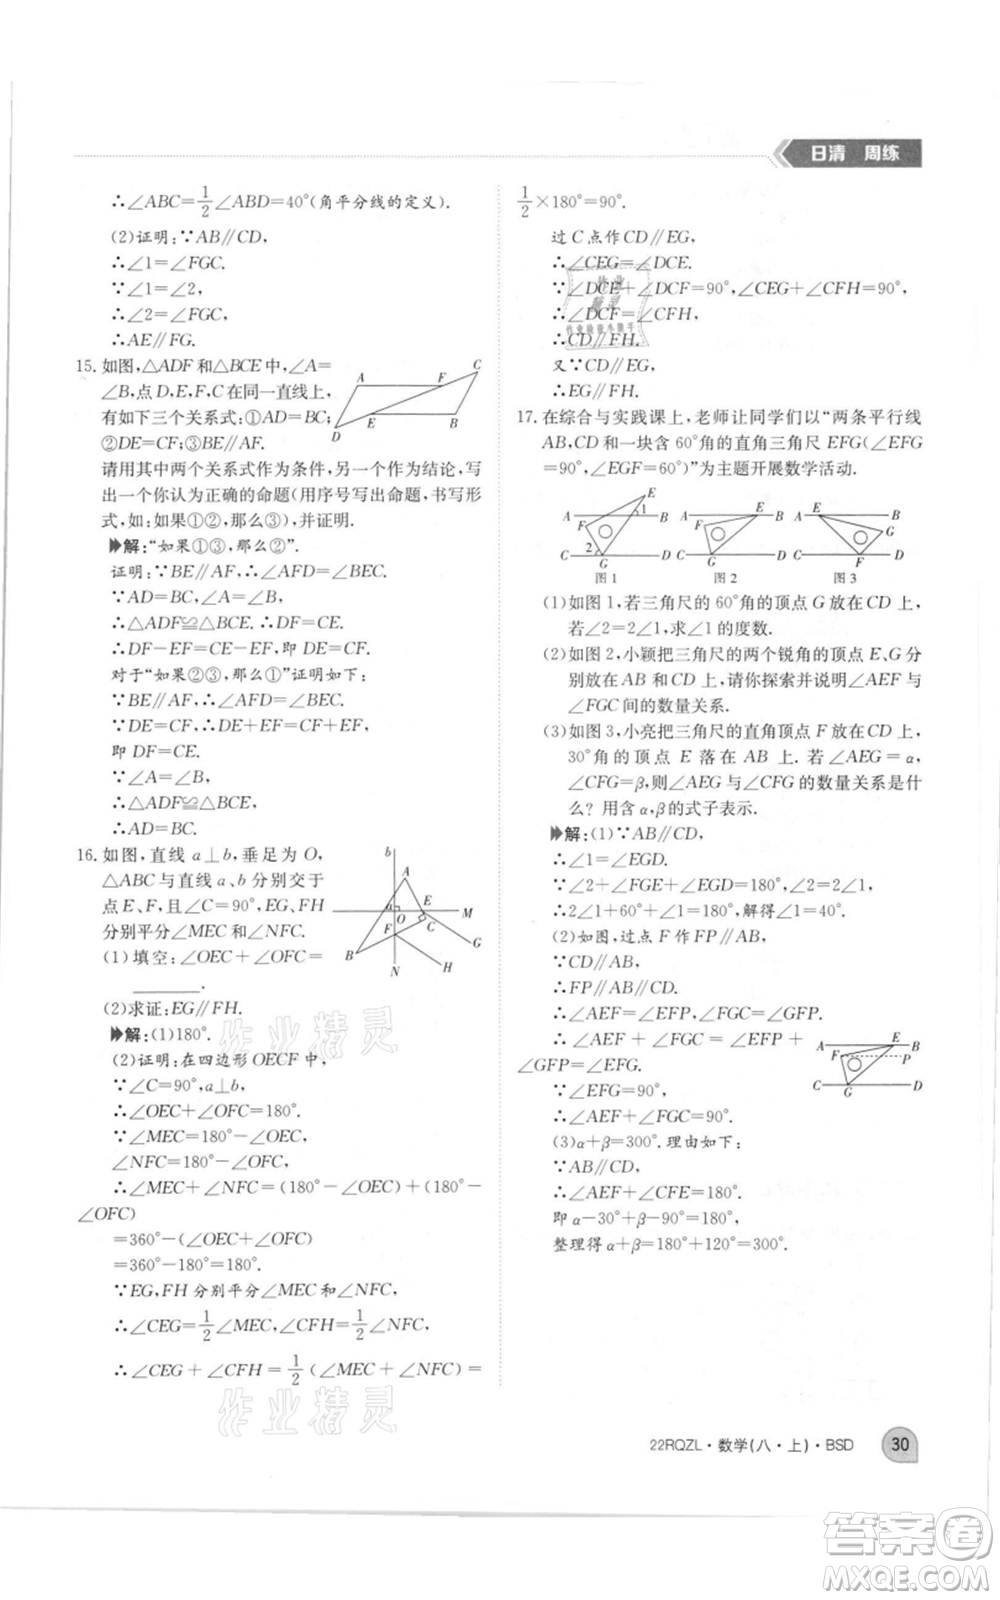 日清 周练
∴∠ABC=1/2∠ABD=40°(角平分线的定义).
(2)证明:∵AB∥CD,
∴∠1=∠FGC.
∵∠1=∠2,
∴∠2=∠FGC,
∴AE∥FG.
15. 如图,△ADF和△BCE中,∠A=
∠B,点D,E,F,C在同一直线上,
有如下三个关系式:①AD=BC;
②DE=CF;③BE∥AF.
请用其中两个关系式作为条件,另一个作为结论,写
出一个你认为正确的命题(用序号写出命题,书写形
式,如:如果①②,那么③),并证明.
解:“如果①③,那么②”.
证明:∵BE∥AF,∴∠AFD=∠BEC.
∵AD=BC,∠A=∠B,
∴△ADF≌△BCE.∴DF=CE.
∴DF-EF=CE-EF,即DE=CF.
对于“如果②③,那么①”证明如下:
∵BE∥AF,∴∠AFD=∠BEC.
∵DE=CF,∴DE+EF=CF+EF,
即DF=CE.
∵∠A=∠B,
∴△ADF≌△BCE,
∴AD=BC.
A F C
D E B
16. 如图,直线a⊥b,垂足为O,
△ABC与直线a、b分别交于
点E、F,且∠C=90°,EG、FH
分别平分∠MEC和∠NFC.
(1)填空:∠OEC+∠OFC=
.
(2)求证:EG∥FH.
b
A
a O E M
F C
B G
N H
解:(1)180°.
(2)证明:在四边形OECF中,
∵∠C=90°,a⊥b,
∴∠OEC+∠OFC=180°.
∵∠MEC=180°-∠OEC,
∠NFC=180°-∠OFC,
∴∠MEC+∠NFC=(180°-∠OEC)+(180°-
∠OFC)
=360°-(∠OEC+∠OFC)
=360°-180°=180°.
∵EG,FH分别平分∠MEC和∠NFC,
∴∠CEG=1/2∠MEC,∠CFH=1/2∠NFC,
∴∠CEG+∠CFH=1/2(∠MEC+∠NFC)=
1/2×180°=90°.
过C点作CD∥EG,
∴∠CEG=∠DCE.
∵∠DCE+∠DCF=90°,∠CEG+∠CFH=90°,
∴∠DCF=∠CFH,
∴CD∥FH.
又∵CD∥EG,
∴EG∥FH.
17. 在综合与实践课上,老师让同学们以“两条平行线
AB,CD和一块含60°角的直角三角尺EFG(∠EFG
=90°,∠EGF=60°)”为主题开展数学活动.
E
A F 1 B
2
C G D
图1
A E B
F
C G D
图2
A E B
G
C F D
图3
(1)如图1,若三角尺的60°角的顶点G放在CD上,
若∠2=2∠1,求∠1的度数.
(2)如图2,小颖把三角尺的两个锐角的顶点E、G分
别放在AB和CD上,请你探索并说明∠AEF与
∠FGC间的数量关系.
(3)如图3,小亮把三角尺的直角顶点F放在CD上,
30°角的顶点E落在AB上.若∠AEG=α,
∠CFG=β,则∠AEG与∠CFG的数量关系是什
么?用含α,β的式子表示.
解:(1)∵AB∥CD,
∴∠1=∠EGD.
∵∠2+∠FGE+∠EGD=180°,∠2=2∠1,
∴2∠1+60°+∠1=180°,解得∠1=40°.
(2)如图,过点F作FP∥AB,
∵CD∥AB,
∴FP∥AB∥CD.
∴∠AEF=∠EFP,∠FGC=∠GFP.
∴∠AEF+∠FGC=∠EFP+
∠GFP=∠EFG.
∵∠EFG=90°,
∴∠AEF+∠FGC=90°.
A E B
F P
C G D
(3)α+β=300°.理由如下:
∵AB∥CD,
∴∠AEF+∠CFE=180°.
即α-30°+β-90°=180°,
整理得α+β=180°+120°=300°.
作业精灵
作业精灵
22RQZL·数学(八·上)·BSD 30
答案卷
MXQE.COM